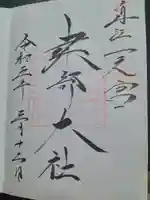 近江一之宮
建部大社
令和三年三月十三日